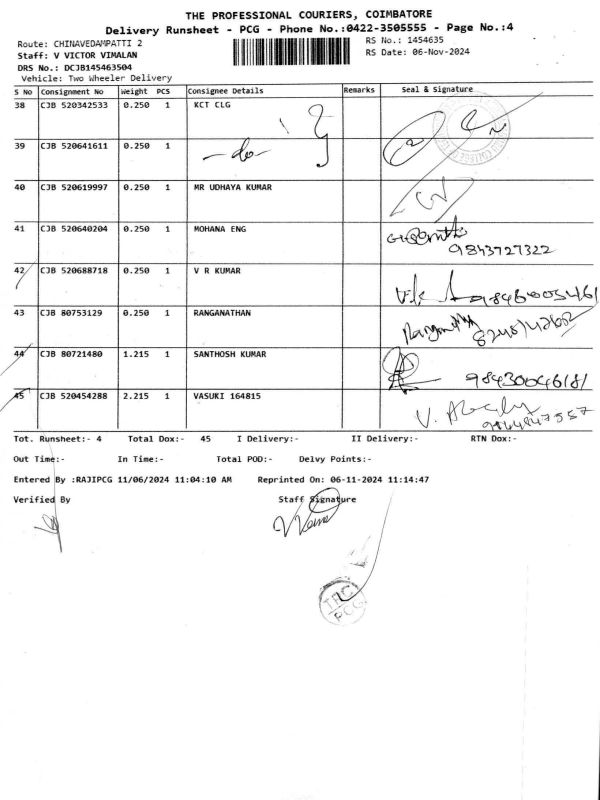 THE PROFESSIONAL COURIERS, COIMBATORE
Delivery Runsheet - PCG - Phone No.:0422-3505555 - Page No.:4
Route: CHINAVEDAMPATTI 2
RS No.: 1454635
Staff: V VICTOR VIMALAN
RS Date: 06-Nov-2024
DRS No.: DCJB145463504
Vehicle: Two Wheeler Delivery
S No Consignment No Weight PCS Consignee Details Remarks Seal & Signature
38 CJB 520342533 0.250 1 KCT CLG
39 CJB 520641611 0.250 1 -do-
40 CJB 520619997 0.250 1 MR UDHAYA KUMAR
41 CJB 520640204 0.250 1 MOHANA ENG
9843727322
42 CJB 520688718 0.250 1 V R KUMAR
43 CJB 80753129 0.250 1 RANGANATHAN
44 CJB 80721480 1.215 1 SANTHOSH KUMAR
9843004618/
45 CJB 520454288 2.215 1 VASUKI 164815
Tot. Runsheet:- 4 Total Dox:- 45 I Delivery:- II Delivery:- RTN Dox:-
Out Time:- In Time:- Total POD:- Delvy Points:-
Entered By :RAJIPCG 11/06/2024 11:04:10 AM Reprinted On: 06-11-2024 11:14:47
Verified By Staff Signature
PCG